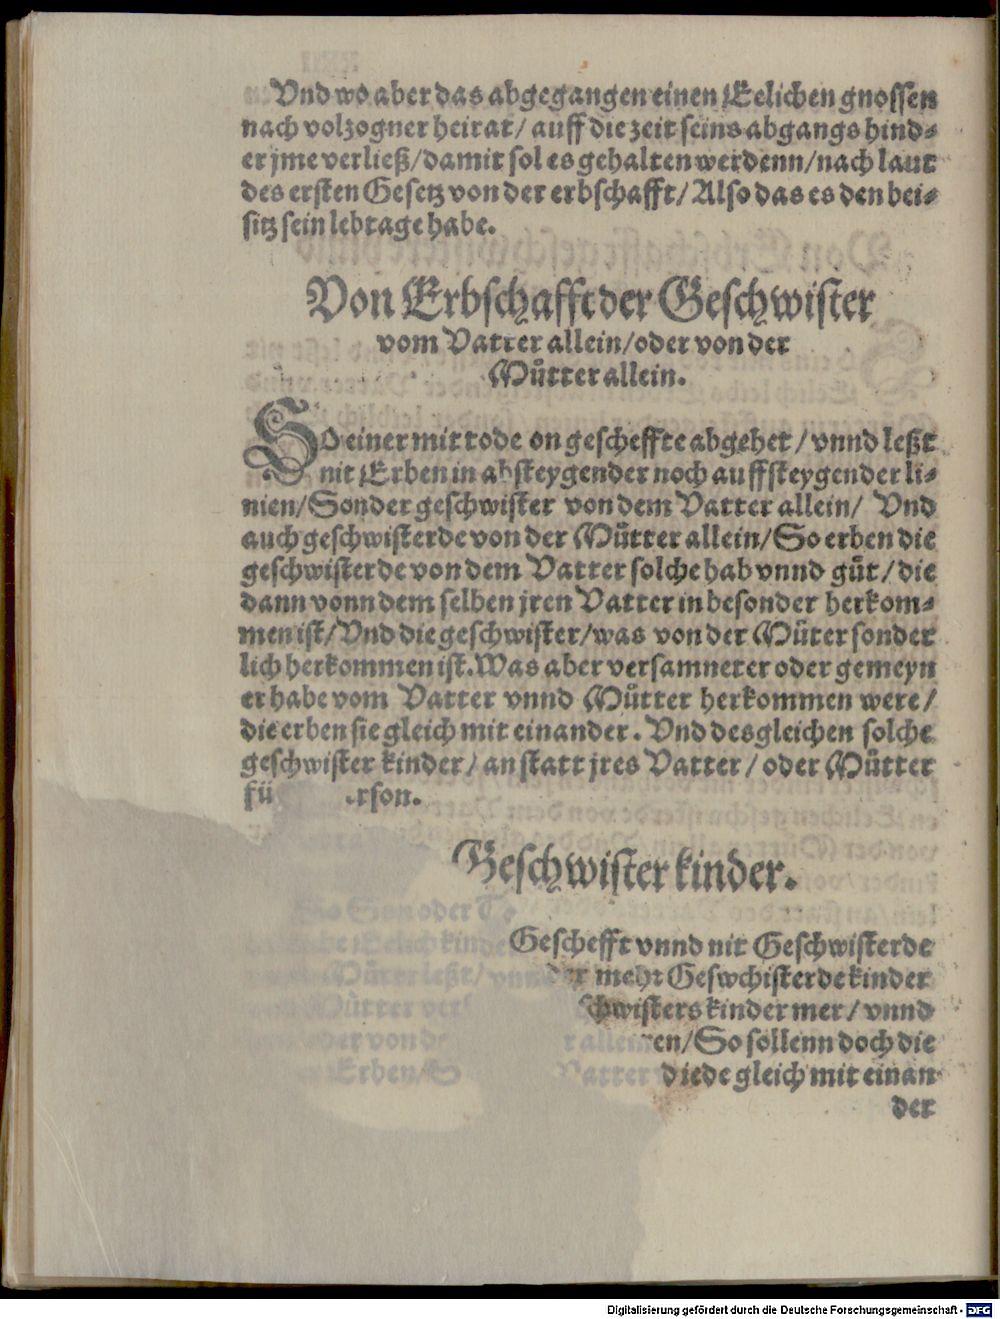 Vnd wo aber das abgegangen einen Eelichen gnossen
nach volzogner heirat/ auff die zeit seins abgangs hind⸗
er jme verließ/damit sol es gehalten werdenn/nach laut
des ersten Gesetz von der erbschafft/ Also das es den bei⸗
sitz sein lebtage habe.
Von Erbschafft der Geschwister
vom Vatter allein/oder von der
Můtter allein.
So einer mit tode on gescheffte abgehet / vnnd leßt
nit Erben in absteygender noch auffsteygender li⸗
nien/Sonder geschwister von dem Vatter allein/ Vnd
auch geschwisterde von der Můtter allein/So erben die
geschwisterde von dem Vatter solche hab vnnd gůt/die
dann vonn dem selben jren Vatter in besonder herkom⸗
men ist/Vnd die geschwister/was von der Můter sonder
lich herkommen ist.Was aber versamneter oder gemeyn
er habe vom Vatter vnnd Můtter herkommen were/
die erben sie gleich mit einander. Vnd desgleichen solche
geschwister kinder/ an statt jres Vatter / oder Můtter
fü rson.
Geschwister kinder.
Geschefft vnnd nit Geschwisterde
der mehr Geswchisterde kinder
chwisters kinder mer/ vnnd
en/So sollenn doch die
diede gleich mit einan
der
Digitalisierung gefördert durch die Deutsche Forschungsgemeinschaft - DFG